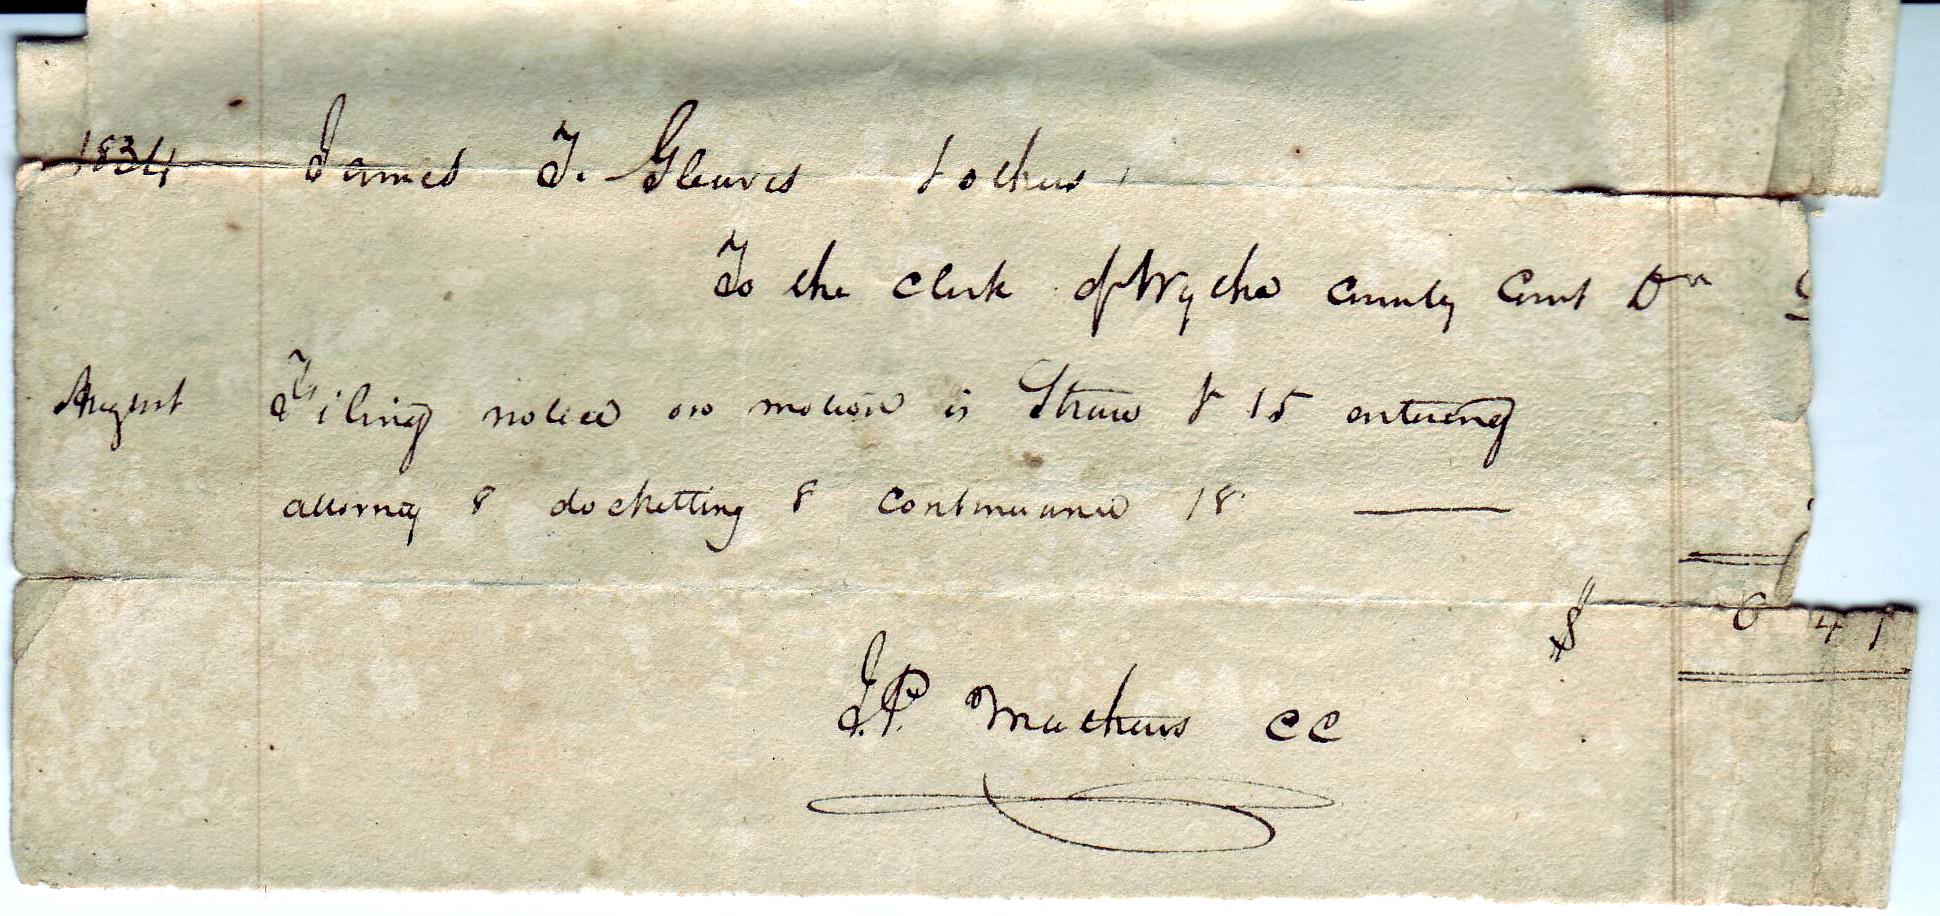 1834 James T. Gleaves & others
To the clerk of Wythe County Court Dr
August Filing notice on motion vs Straw & 15 entering
attorney 8 docketting 8 continuance 18
$ 0 41
J.P. Mathews CC